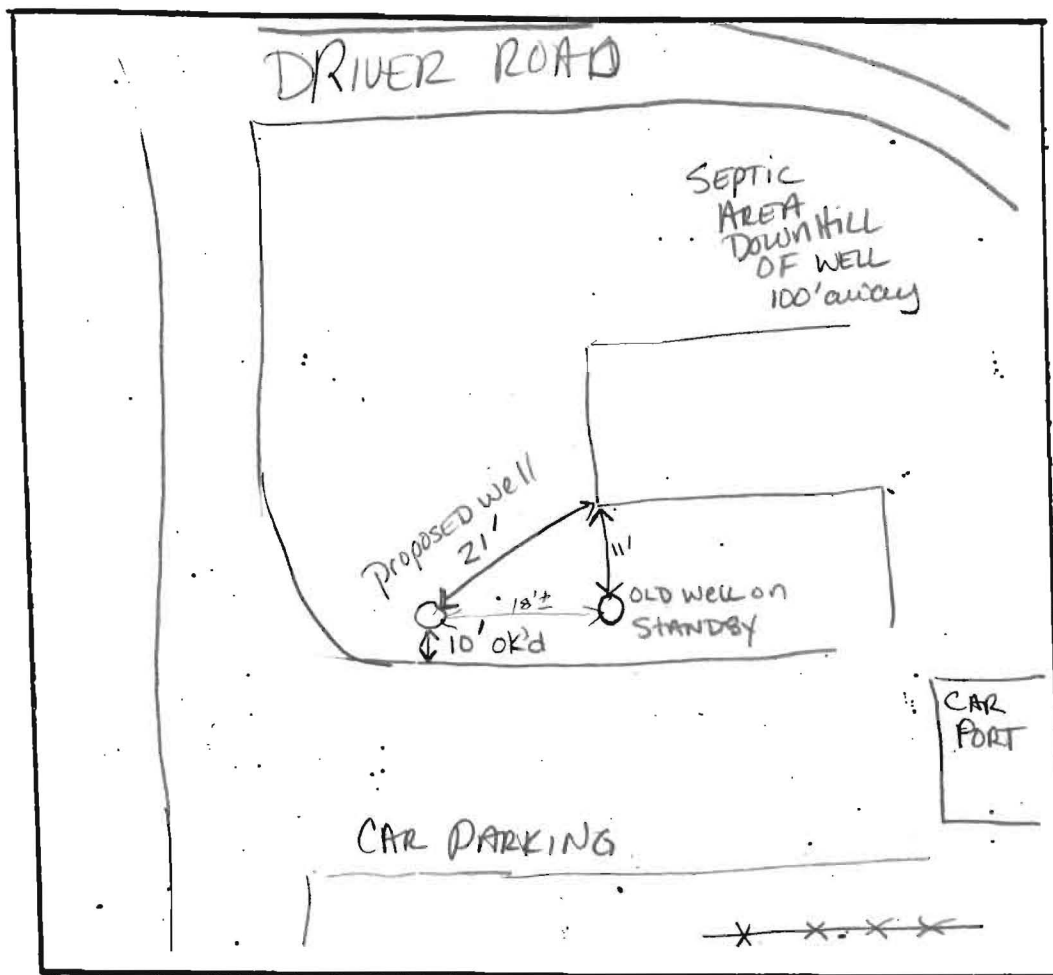 DRIVER ROAD
SEPTIC
AREA
DOWNHILL
OF WELL
100' away
Proposed well
21'
11'
18'±
OLD WELL on
STANDBY
10' OK'd
CAR
PORT
CAR PARKING